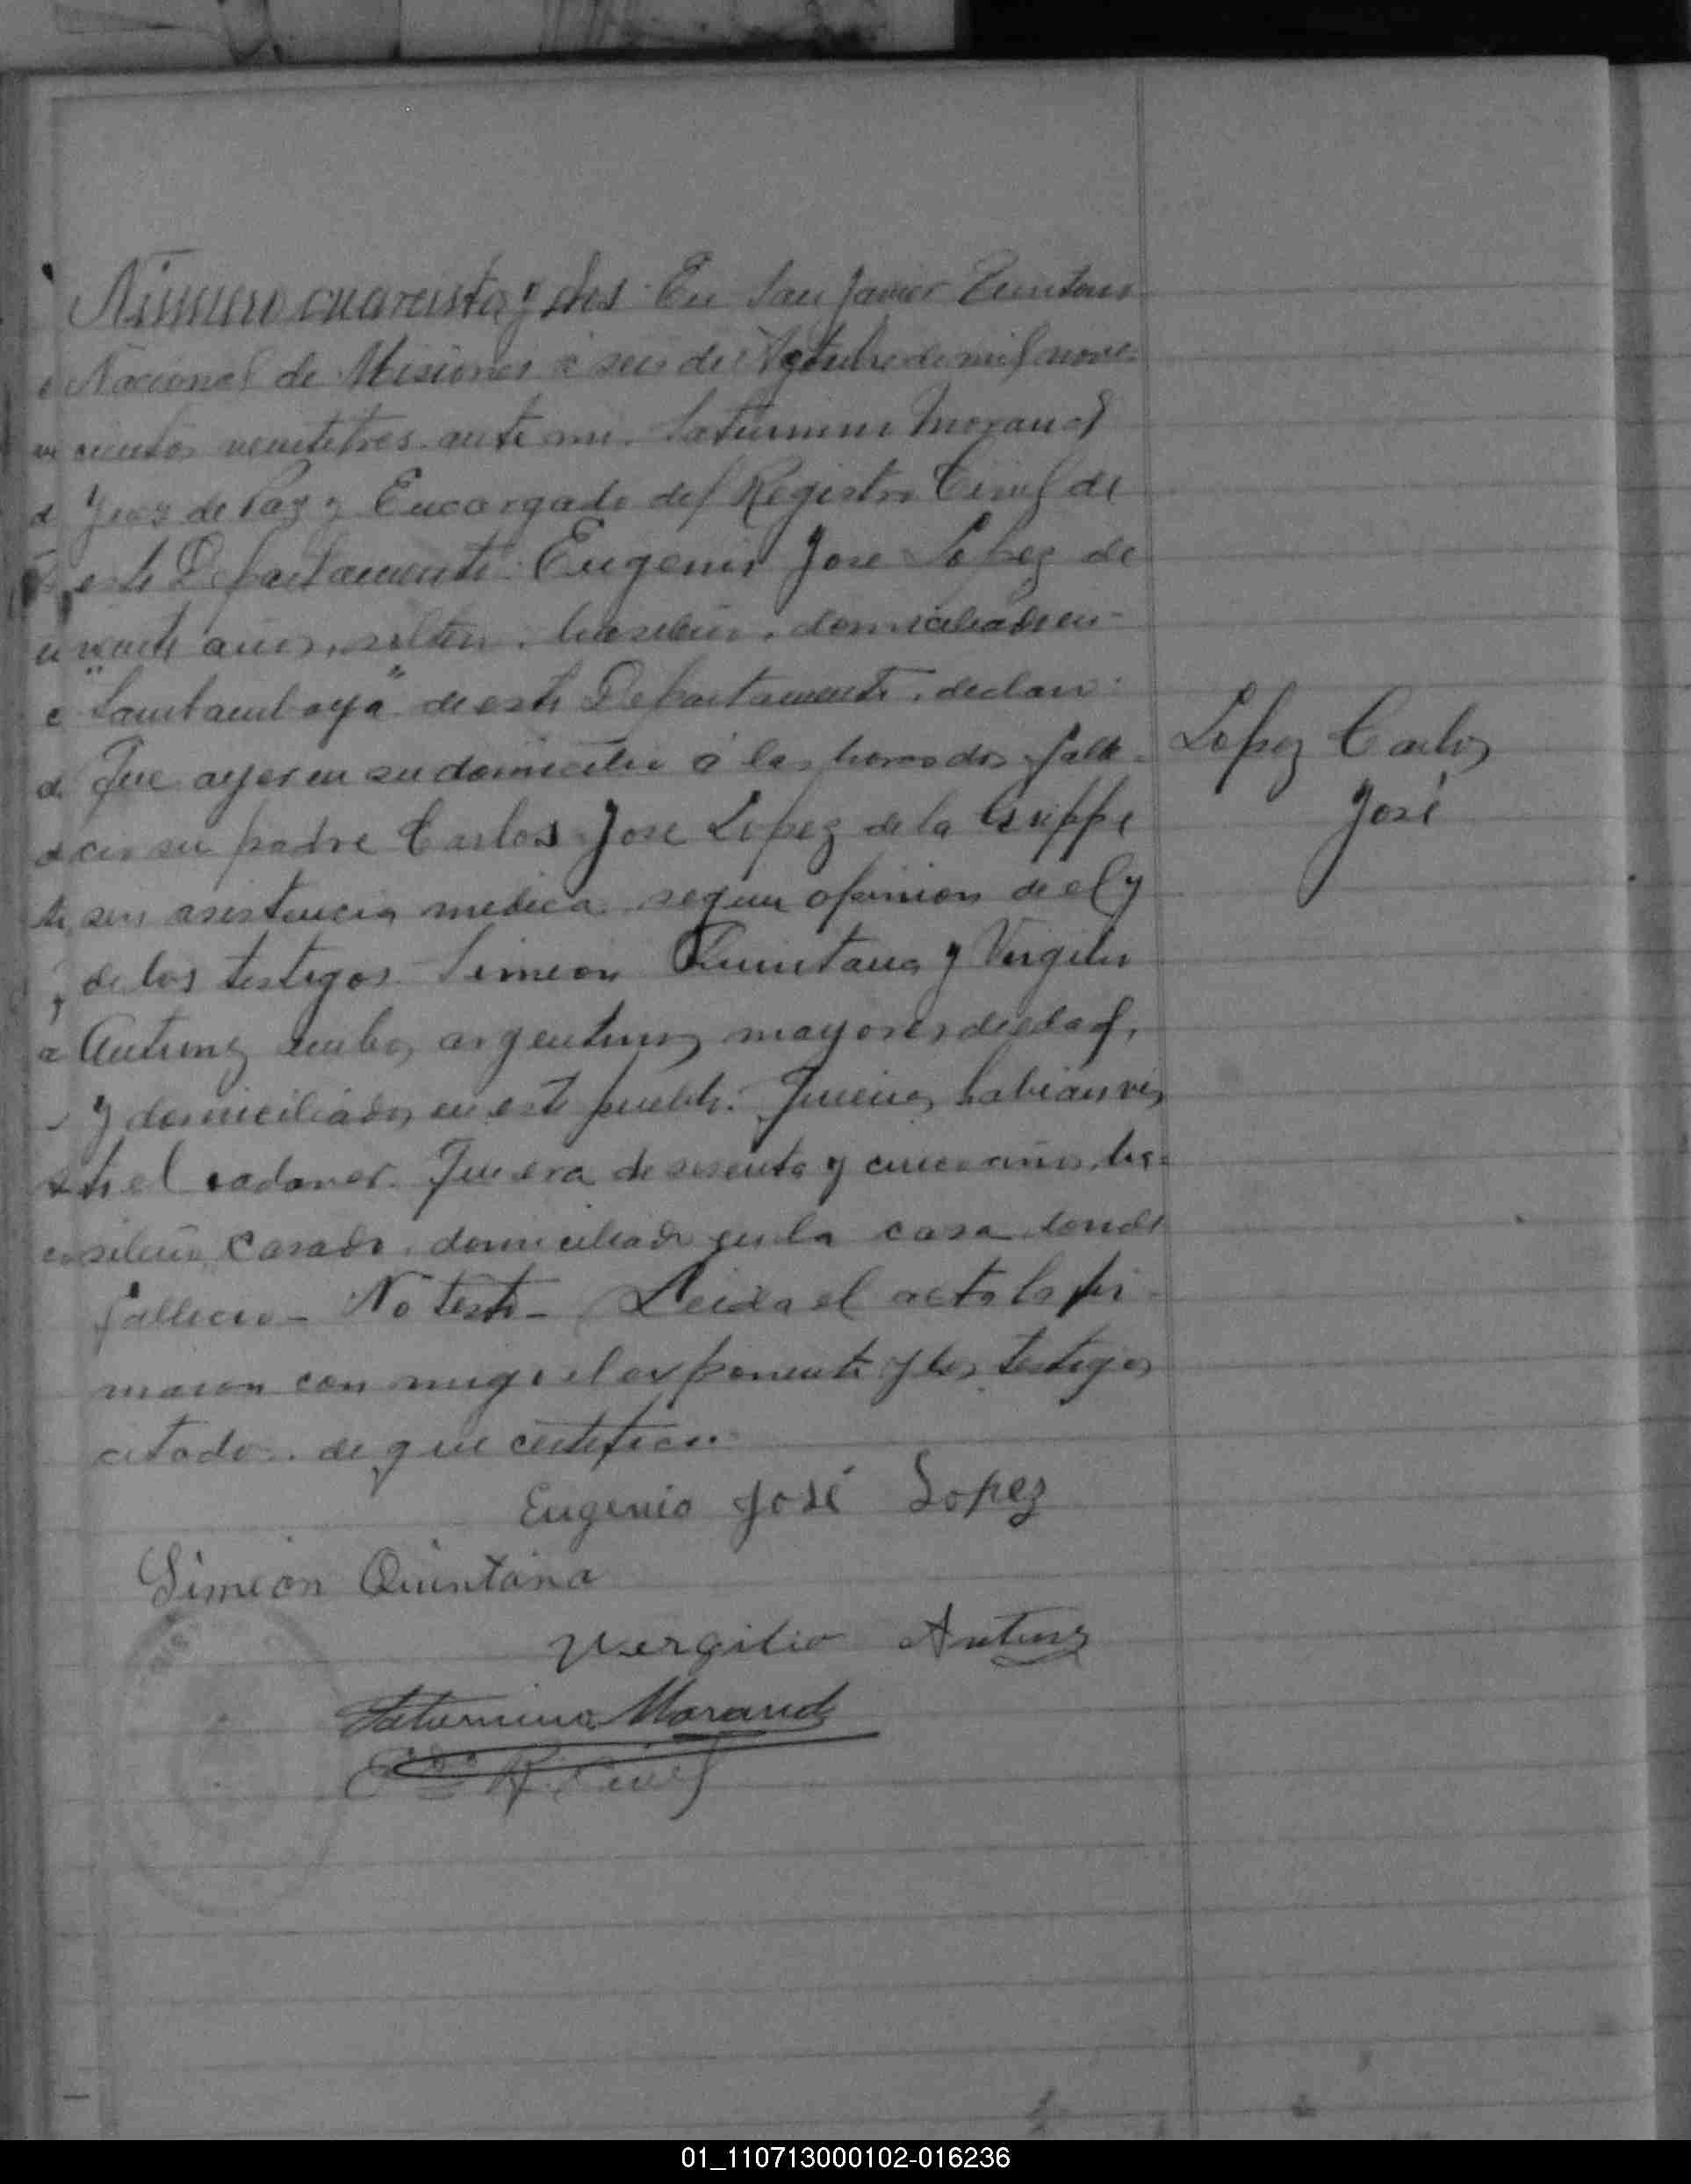 Número cuarenta y dos En San Javier Territorio
Nacional de Misiones á seis de Octubre de mil nove-
cientos veintitres ante mi. Saturnino Morand
Juez de Paz y Encargado del Registro Civil de
este Departamento Eugenio Jose Lopez de
veinte años, soltero, brasilero, domiciliado en
de este Departamento, declaró:
Que ayer en su domicilio á las horas dos falle-
ció su padre Carlos Jose Lopez de la Grippe
sin asistencia medica segun opinion de el y
de los testigos Simeon Quintana y Virgilio
Antunez ambos argentinos mayores de edad,
y domiciliados en este pueblo. Quienes habian vis
to el cadaver. Que era de sesenta y cinco años, bra-
silero casado, domiciliado en la casa donde
fallecio - No testó - Leida el acta la fir-
maron con migo el exponente y los testigos
citados. de que certifico.
Lopez Carlos
José
Eugenio José Lopez
Simeon Quintana
Vergilio Antunz
Saturnino Morand
Edo R. Civil
01_110713000102-016236